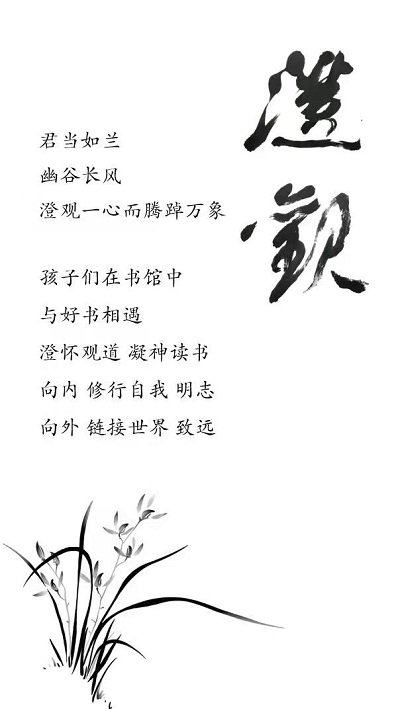 澄觀
君当如兰
幽谷长风
澄观一心而腾踔万象
孩子们在书馆中
与好书相遇
澄怀观道 凝神读书
向内 修行自我 明志
向外 链接世界 致远